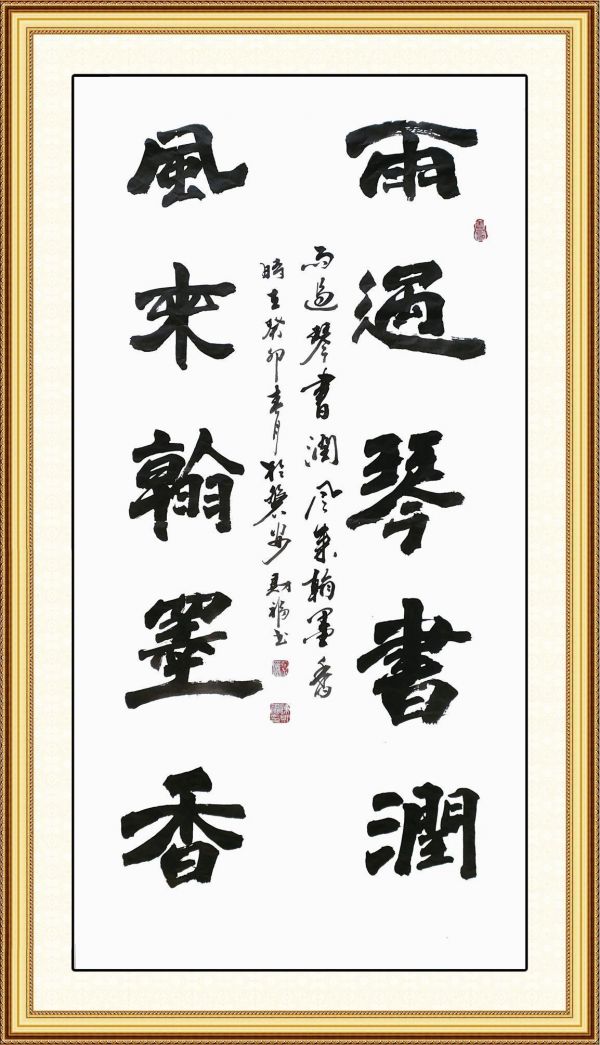 雨過琴書潤
風來翰墨香
雨過琴書潤風來翰墨香
時在癸卯春月於龔步財福書